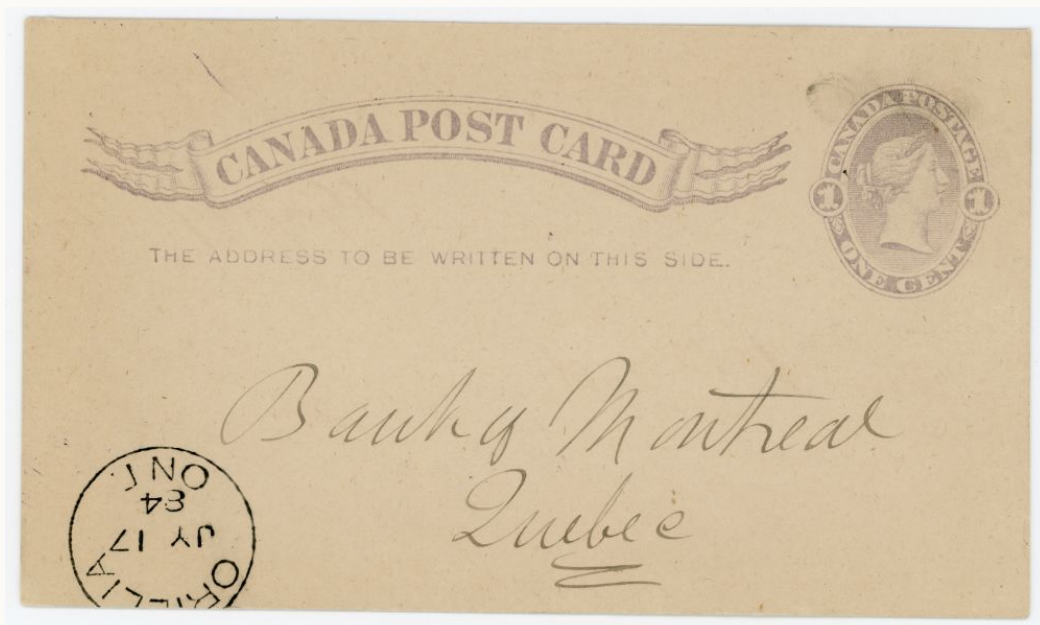 CANADA POST CARD
CANADA POSTAGE
1 1
ONE CENT
THE ADDRESS TO BE WRITTEN ON THIS SIDE.
Bank of Montreal
Quebec
ORILLIA
JY 17
84
ONT.